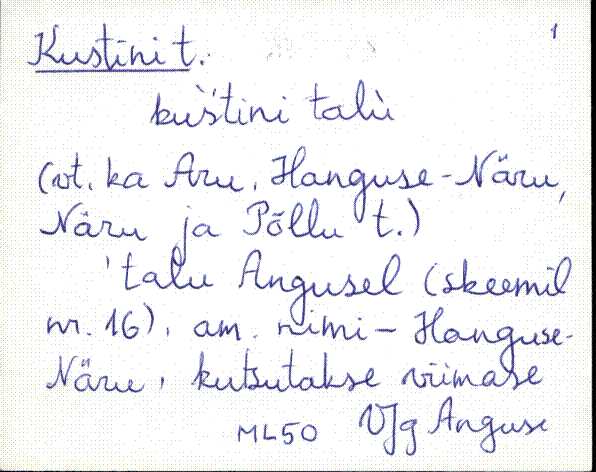 1
Kustini t.
kus̀'tini talu
(vt. ka Aru, Hanguse-Näru,
Näru ja Põllu t.)
'talu Angusel (skeemil
nr. 16), am. nimi - Hanguse-
Näru, kutsutakse viimase
ML50 VJg Anguse